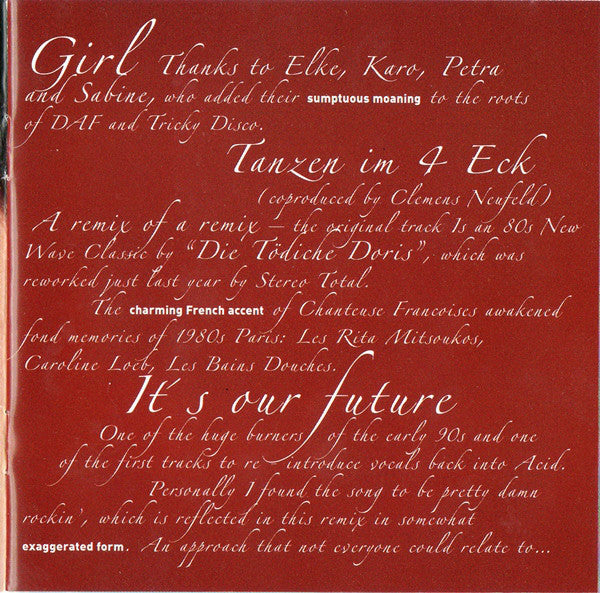 Girl Thanks to Elke, Karo, Petra
and Sabine, who added their sumptuous moaning to the roots
of DAF and Tricky Disco.
Tanzen im 4 Eck
(coproduced by Clemens Neufeld)
A remix of a remix – the original track Is an 80s New
Wave Classic by “Die Tödiche Doris”, which was
reworked just last year by Stereo Total.
The charming French accent of Chanteuse Francoises awakened
fond memories of 1980s Paris: Les Rita Mitsoukos,
Caroline Loeb, Les Bains Douches.
It´s our future
One of the huge burners of the early 90s and one
of the first tracks to re - introduce vocals back into Acid.
Personally I found the song to be pretty damn
rockin’, which is reflected in this remix in somewhat
exaggerated form. An approach that not everyone could relate to...